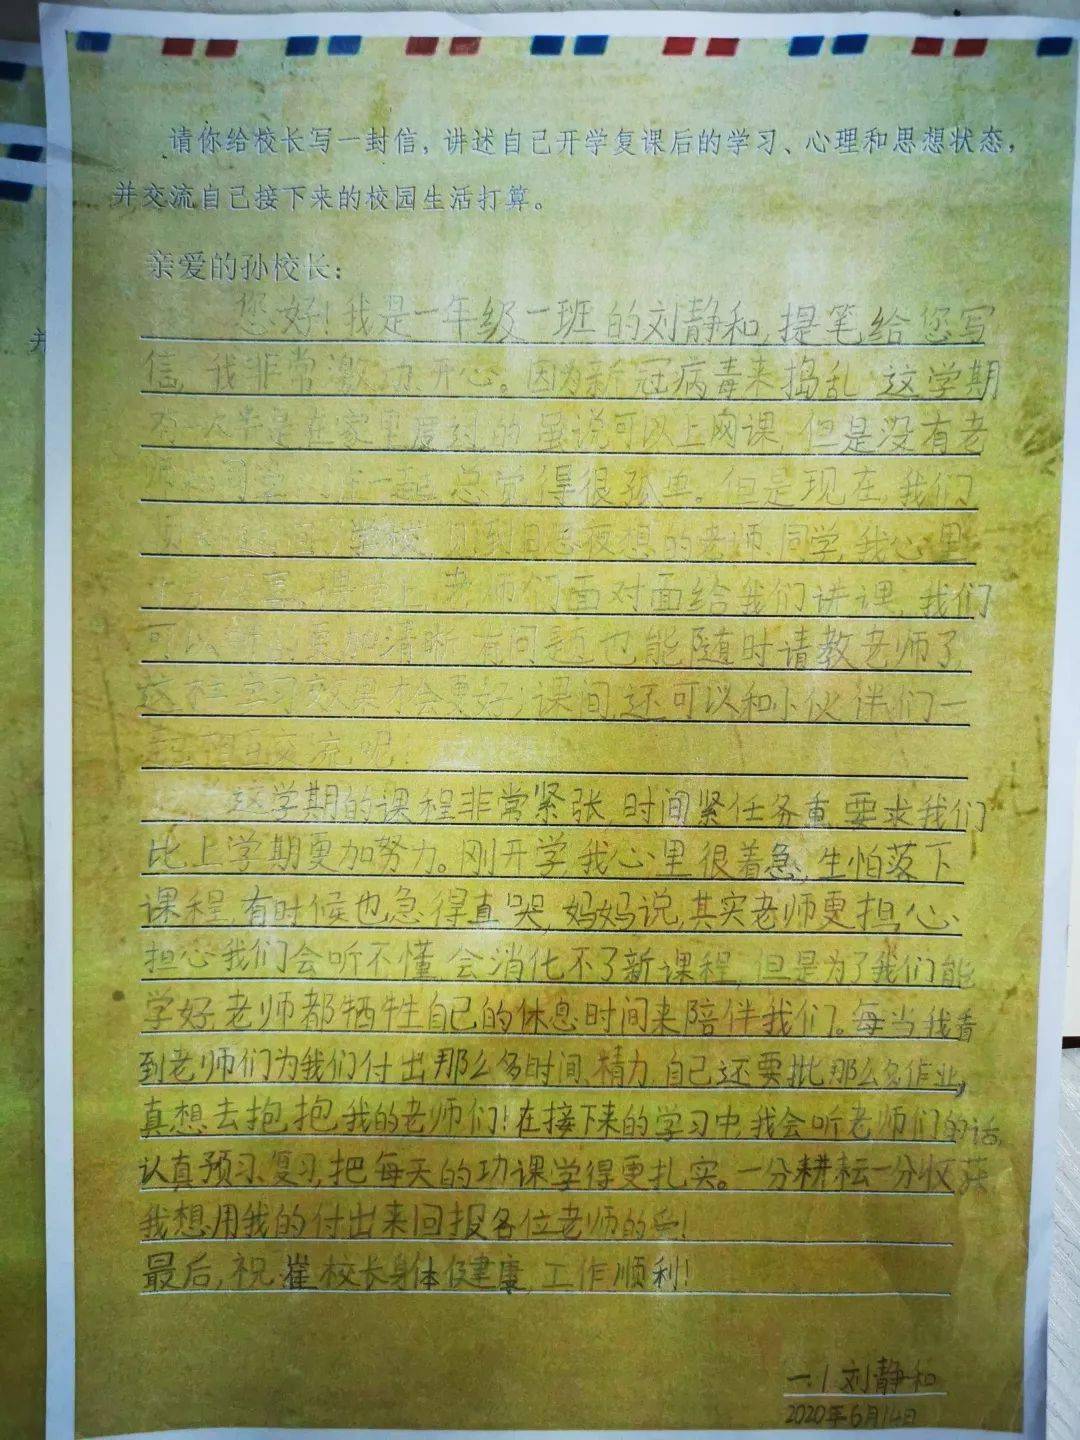 请你给校长写一封信，讲述自己开学复课后的学习、心理和思想状态，
并交流自己接下来的校园生活打算。
亲爱的孙校长：
您好！我是一年级一班的刘静和，提笔给您写
信，我非常激动、开心。因为新冠病毒来捣乱，这学期
有一大半是在家里度过的，虽说可以上网课，但是没有老
师和同学们在一起，总觉得很孤单。但是现在，我们
学校，见到日思夜想的老师、同学，我心里
课堂上，老师们面对面给我们讲课，我们
可以听的更加清晰，有问题也能随时请教老师了，
这样学习效果才会更好；课间，还可以和小伙伴们一
起相互交流呢！
这学期的课程非常紧张，时间紧任务重，要求我们
比上学期更加努力。刚开学，我心里很着急，生怕落下
课程，有时候也急得直哭，妈妈说，其实老师更担心，
担心我们会听不懂，会消化不了新课程，但是为了我们能
学好，老师都牺牲自己的休息时间来陪伴我们。每当我看
到老师们为我们付出那么多时间、精力，自己还要批那么多作业，
真想去抱抱我的老师们！在接下来的学习中，我会听老师们的话，
认真预习、复习，把每天的功课学得更扎实。一分耕耘一分收获，
我想用我的付出来回报各位老师的爱！
最后，祝崔校长身体健康，工作顺利！
一.1 刘静和
2020年6月14日
并